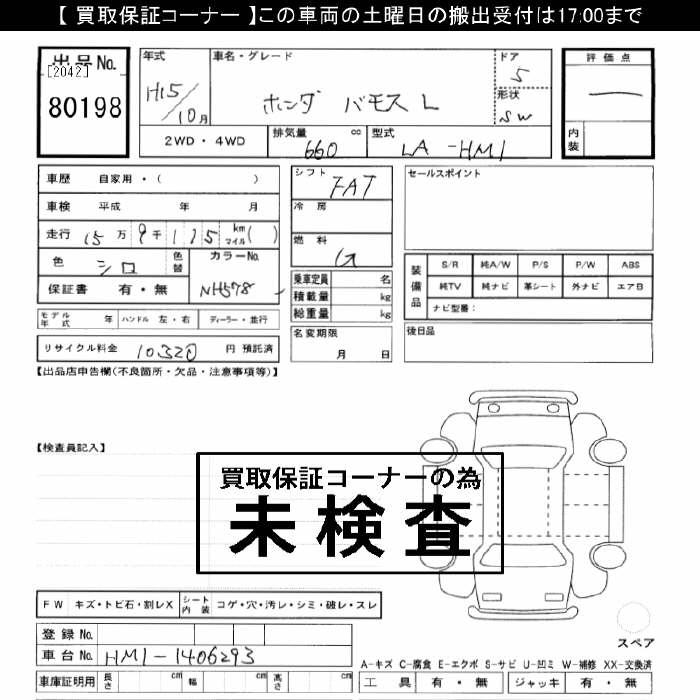 【 買取保証コーナー 】この車両の土曜日の搬出受付は17:00まで
出品No.
[2042]
80198
年式
H15/10月
車名・グレード
ホンダ バモス L
ドア
5
形状
SW
評価点
内装
2WD・4WD
排気量 660 cc
型式 LA-HM1
車歴 自家用・( )
車検 平成 年 月
走行 15万9千115 km マイル( )
色 シロ 色替
カラーNo. NH578
保証書 有・無
モデル年式 年 ハンドル 左・右 ディーラー・並行
リサイクル料金 10320 円 預託済
シフト FAT
冷房
燃料 G
乗車定員 名
積載量 kg
総重量 kg
名変期限
月 日
セールスポイント
装備品
S/R 純A/W P/S P/W ABS
純TV 純ナビ 革シート 外ナビ エアB
ナビ型番:
後日品
【出品店申告欄(不良箇所・欠品・注意事項等)】
【検査員記入】
買取保証コーナーの為
未検査
FW キズ・トビ石・割レX シート内装 コゲ・穴・汚レ・シミ・破レ・スレ
登録No.
車台No. HM1-1406293
車庫証明用 長さ cm 幅 cm 高さ cm
スペア
A-キズ C-腐食 E-エクボ S-サビ U-凹ミ W-補修 XX-交換済
工具 有・無 ジャッキ 有・無